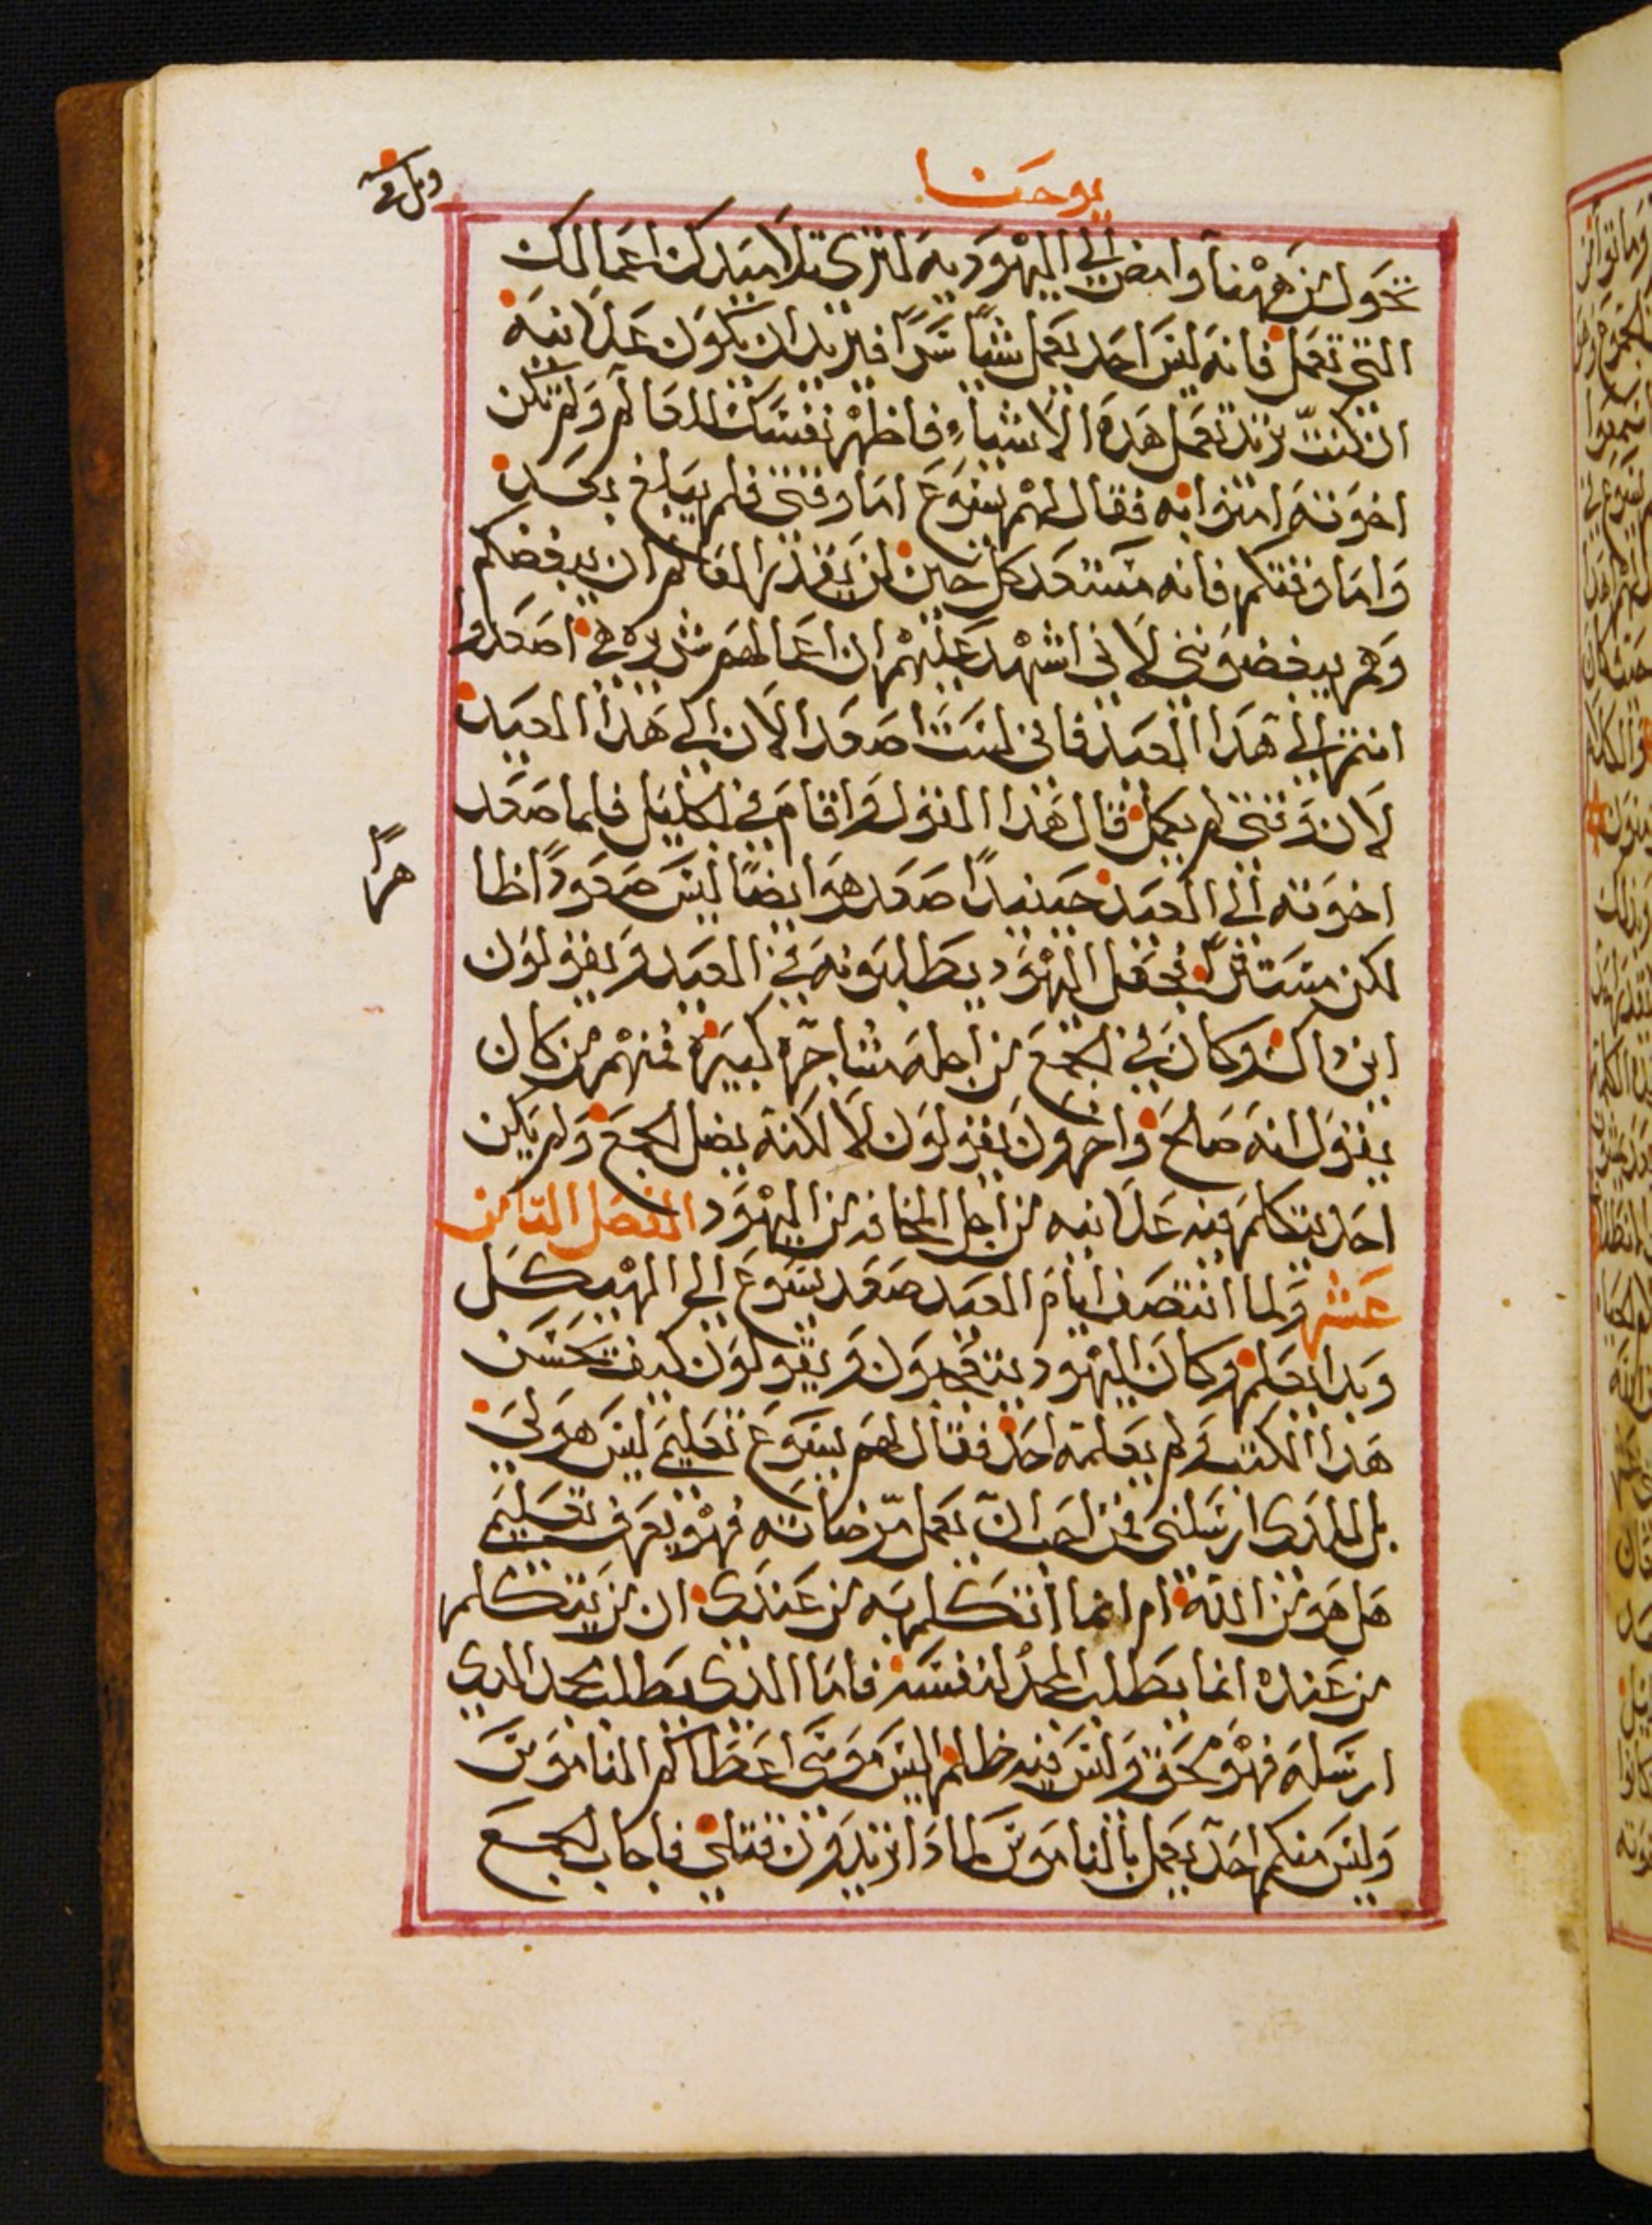 يوحنا
تحول من ههنا وامض الي اليهوديه لتري تلاميدك اعمالك
التي تعمل فانه ليس احد يعمل شياً سراً فيريد ان يكون علانيه
ان كنت تريد تعمل هده الاشياء فاظهر نفسك للعالم ولم تكن
اخوته امنوا به فقال لهم يسوع اما وقتي فلم يبلغ بعد
واما وقتكم فانه مستعد كل حين لن يقدر العالم ان يبغضكم
وهم يبغضوني لاني اشهد عليهم ان اعمالهم شريره هي اصعدوا
انتم الي هدا العيد فاني لست اصعد الان الي هدا العيد
لان وقتي لم يكمل قال هدا القول واقام في الجليل فلما صعد
اخوته الي العيد حينيداً صعد هو ايضاً ليس صعوداً ظا
لكن مستتراً فجعل اليهود يطلبونه في العيد ويقولون
اين داك وكان في الجمع من اجله مشاجره كبيره فمنهم من كان
يقول انه صالح واخرون يقولون لا لكنه يضل الجمع ولم يكن
احد يتكلم فيه علانيه من اجل المخافه من اليهود الفصل التامن
عشر ولما انتصف ايام العيد صعد يسوع الي الهيكل
وبدا يعلم وكان اليهود يتعجبون ويقولون كيف يحسن
هدا الكتب ولم يعلمه احد فقال لهم يسوع تعليمي ليس هو لي
بل للدي ارسلني فمن احب ان يعمل مرضاته فهو يعرف تعليمي
هل هو من الله ام انما اتكلم به من عندي ان من يتكلم
من عنده انما يطلب المجد لنفسه فاما الدي يطلب مجد الدي
ارسله فهو محق وليس فيه ظلم اليس موسي اعطاكم الناموس
وليس منكم احد يعمل بالناموس لما دا تريدون قتلي فاجاب الجمع